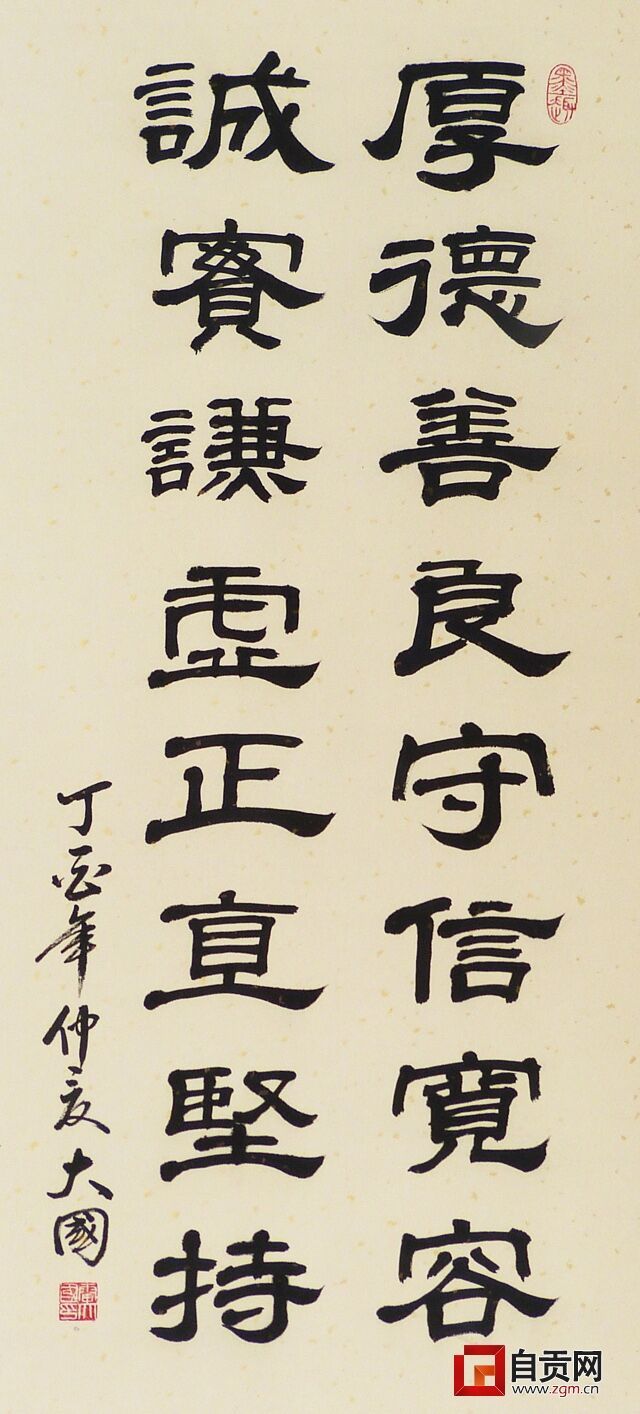 厚德善良守信寬容
誠實謙虛正直堅持
丁酉年仲夏大國
自贡网
www.zgm.cn